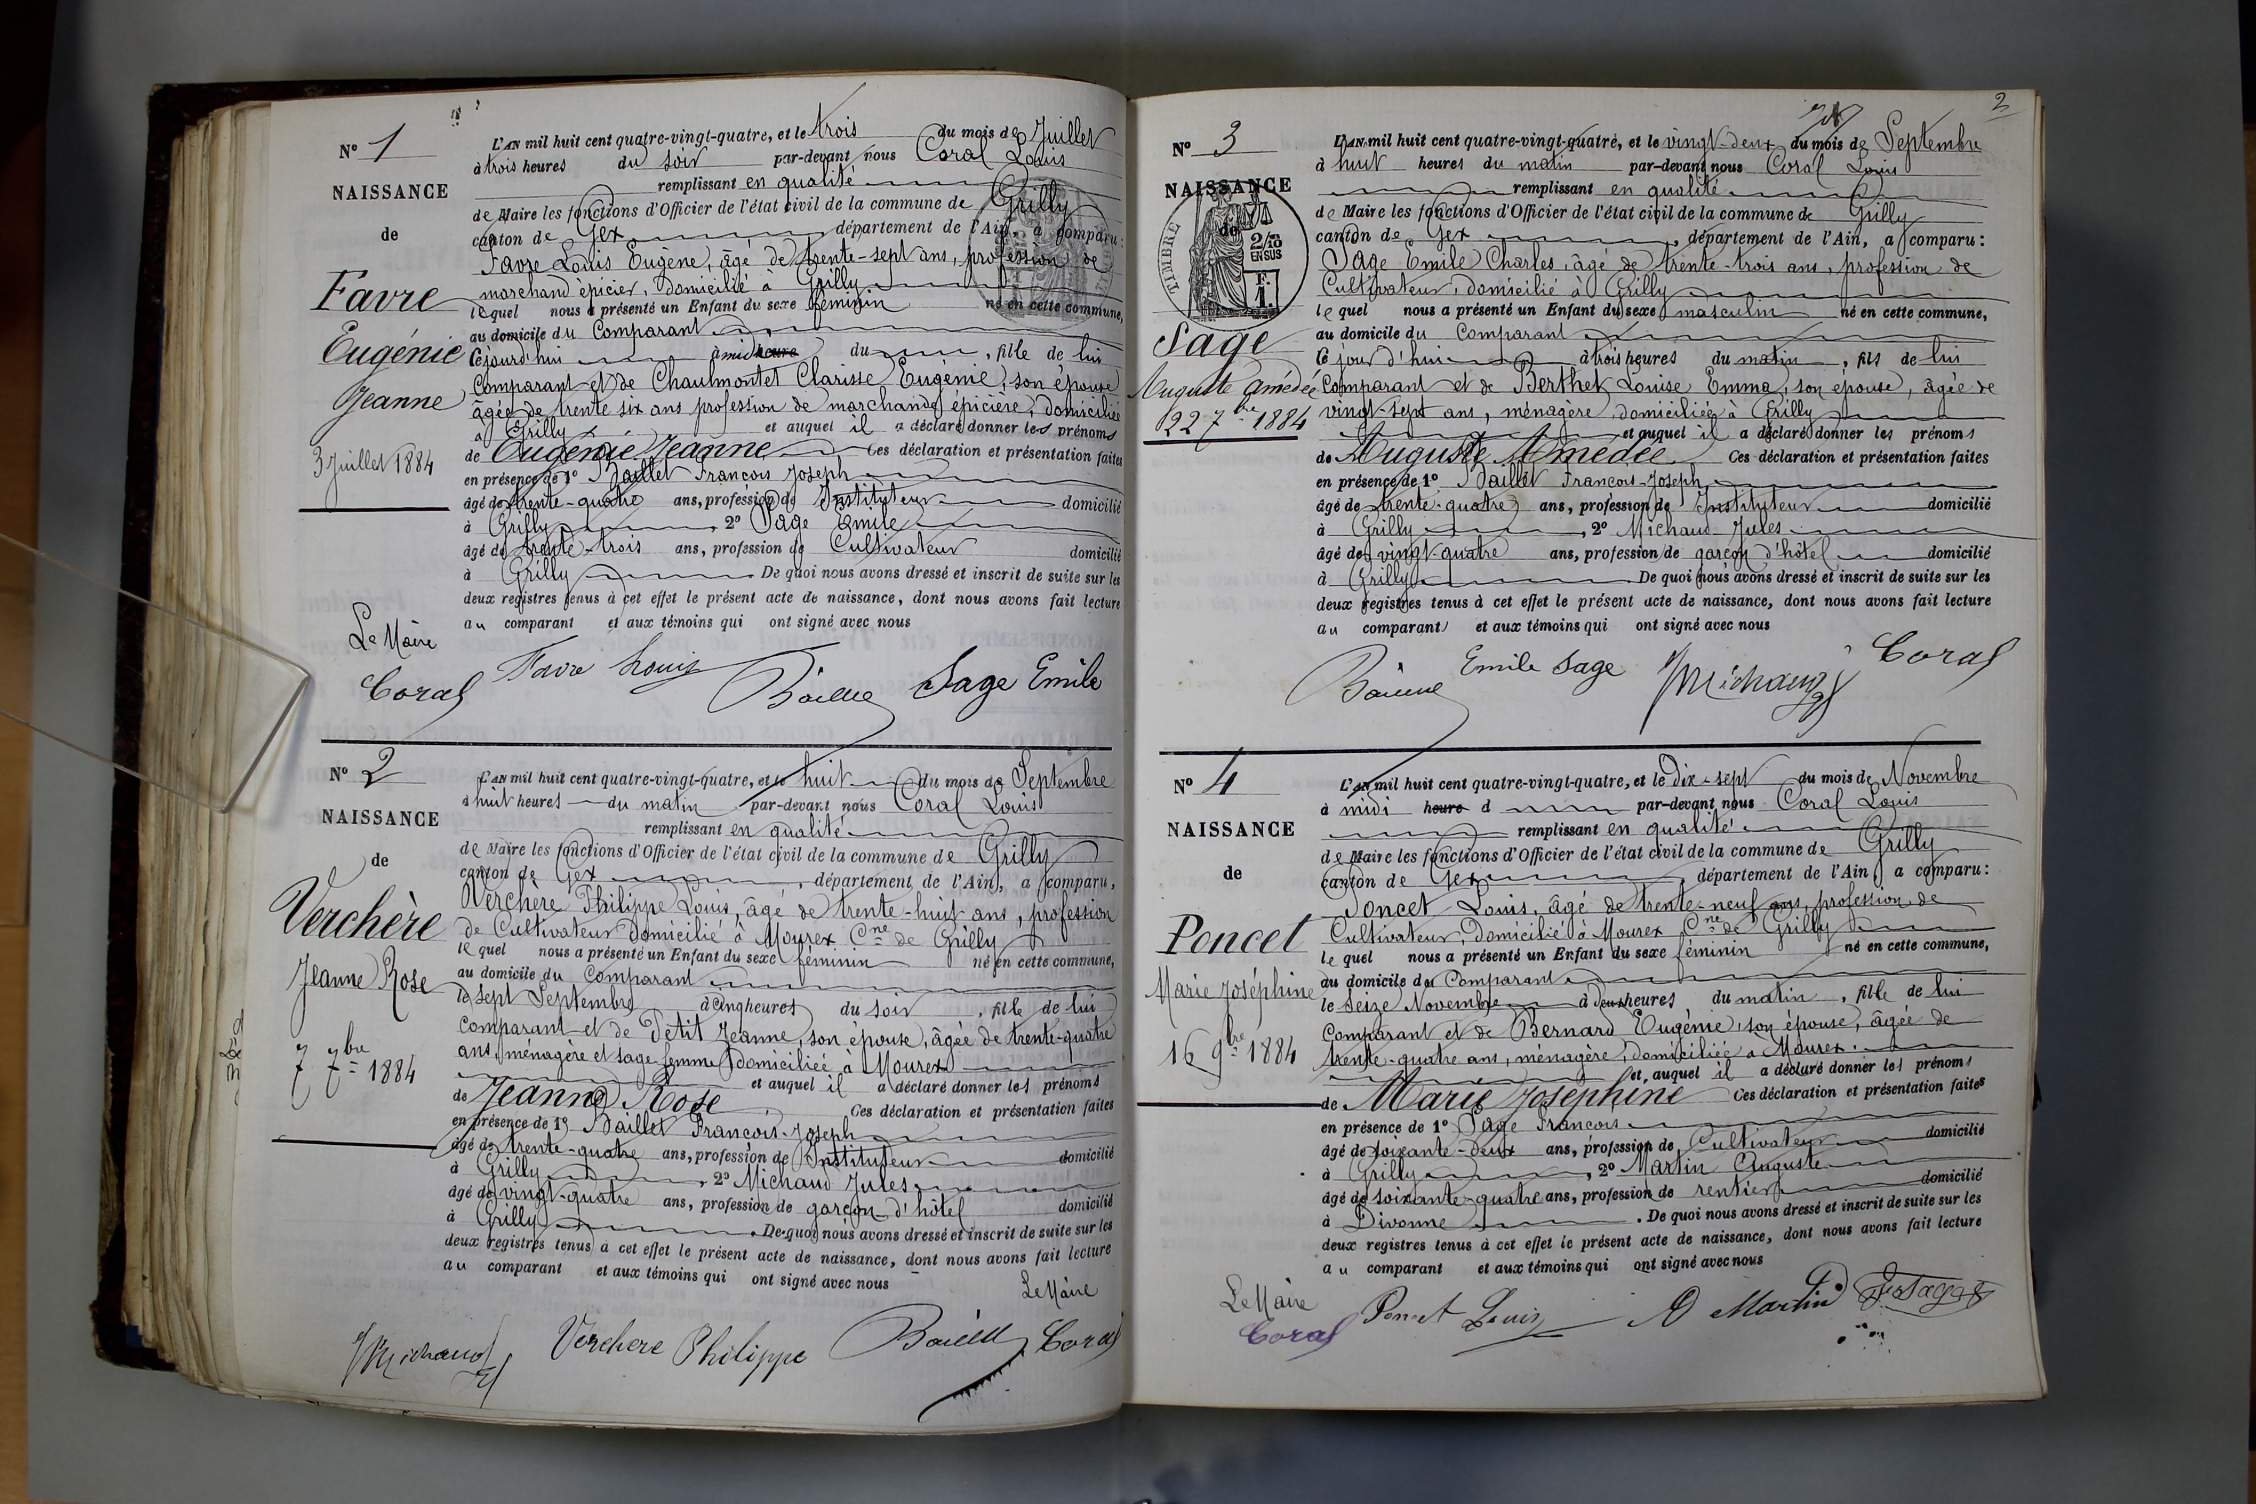 Nº 1
NAISSANCE
de
Favre
Eugénie
Jeanne
3 Juillet 1884
L'AN mil huit cent quatre-vingt-quatre, et le trois du mois de Juillet
à trois heures du soir par-devant nous Coral Louis
remplissant en qualité
de Maire les fonctions d'Officier de l'état civil de la commune de Grilly
canton de Gex département de l'Ain, a comparu:
Favre Louis Eugène, âgé de trente-sept ans, profession de
marchand épicier, domicilié à Grilly
lequel nous a présenté un Enfant du sexe féminin né en cette commune,
au domicile du Comparant
Cejourd'hui à midi heure du , fille de lui
Comparant et de Chaulmontet Clarisse Eugénie, son épouse
âgée de trente six ans profession de marchande épicière, domiciliée
à Grilly et auquel il a déclaré donner les prénoms
de Eugénie Jeanne Ces déclaration et présentation faites
en présence de 1º Baillet François Joseph
âgé de trente-quatre ans, profession de Instituteur domicilié
à Grilly , 2º Sage Emile
âgé de trente-trois ans, profession de Cultivateur domicilié
à Grilly De quoi nous avons dressé et inscrit de suite sur les
deux registres tenus à cet effet le présent acte de naissance, dont nous avons fait lecture
au comparant et aux témoins qui ont signé avec nous
Le Maire
Coral Favre Louis Baillet Sage Emile
Nº 2
NAISSANCE
de
Verchère
Jeanne Rose
7 7bre 1884
L'AN mil huit cent quatre-vingt-quatre, et le huit du mois de Septembre
à huit heures du matin par-devant nous Coral Louis
remplissant en qualité
de Maire les fonctions d'Officier de l'état civil de la commune de Grilly
canton de Gex , département de l'Ain, a comparu,
Verchère Philippe Louis, âgé de trente-huit ans, profession
de Cultivateur domicilié à Mourex Cne de Grilly
lequel nous a présenté un Enfant du sexe féminin né en cette commune,
au domicile du Comparant
le sept Septembre à cinq heures du soir , fille de lui
comparant et de Petit Jeanne, son épouse, âgée de trente-quatre
ans, ménagère et sage femme domiciliée à Mourex
et auquel il a déclaré donner les prénoms
de Jeanne Rose Ces déclaration et présentation faites
en présence de 1º Baillet François-Joseph
âgé de trente-quatre ans, profession de Instituteur domicilié
à Grilly , 2º Michaud Jules
âgé de vingt-quatre ans, profession de garçon d'hôtel domicilié
à Grilly . De quoi nous avons dressé et inscrit de suite sur les
deux registres tenus à cet effet le présent acte de naissance, dont nous avons fait lecture
au comparant et aux témoins qui ont signé avec nous
Le Maire
J Michaud Verchere Philippe Baillet Coral
2
Nº 3
NAISSANCE
de
TIMBRE
2/10
EN SUS
F.
1.
Sage
Auguste Amédée
22 7bre 1884
L'AN mil huit cent quatre-vingt-quatre, et le vingt-deux du mois de Septembre
à huit heures du matin par-devant nous Coral Louis
remplissant en qualité
de Maire les fonctions d'Officier de l'état civil de la commune de Grilly
canton de Gex , département de l'Ain, a comparu:
Sage Emile Charles, âgé de trente-trois ans, profession de
Cultivateur, domicilié à Grilly
lequel nous a présenté un Enfant du sexe masculin né en cette commune,
au domicile du Comparant
Ce jour d'hui à trois heures du matin , fils de lui
Comparant et de Berthet Louise Emma, son epouse, âgée de
vingt-sept ans, ménagère, domiciliée à Grilly
et auquel il a déclaré donner les prénoms
de Auguste Amédée Ces déclaration et présentation faites
en présence de 1º Baillet François-Joseph
âgé de trente-quatre ans, profession de Instituteur domicilié
à Grilly , 2º Michaud Jules
âgé de vingt-quatre ans, profession de garçon d'hôtel domicilié
à Grilly De quoi nous avons dressé et inscrit de suite sur les
deux registres tenus à cet effet le présent acte de naissance, dont nous avons fait lecture
au comparant et aux témoins qui ont signé avec nous
Baillet Emile Sage J Michaud Coral
Nº 4
NAISSANCE
de
Poncet
Marie Joséphine
16 9bre 1884
L'AN mil huit cent quatre-vingt-quatre, et le Dix-sept du mois de Novembre
à midi heure d par-devant nous Coral Louis
remplissant en qualité
de Maire les fonctions d'Officier de l'état civil de la commune de Grilly
canton de Gex département de l'Ain, a comparu:
Poncet Louis, âgé de trente-neuf ans, profession de
Cultivateur, domicilié à Mourex Cne de Grilly
lequel nous a présenté un Enfant du sexe féminin né en cette commune,
au domicile du Comparant
le Seize Novembre à deux heures du matin , fille de lui
Comparant et de Bernard Eugénie, son épouse, âgée de
trente-quatre ans, menagère, domiciliée à Mourex.
et auquel il a déclaré donner les prénoms
de Marie Joséphine Ces déclaration et présentation faites
en présence de 1º Sage François
âgé de soixante-deux ans, profession de Cultivateur domicilié
à Grilly , 2º Martin Auguste
âgé de soixante-quatre ans, profession de rentier domicilié
à Divonne . De quoi nous avons dressé et inscrit de suite sur les
deux registres tenus à cet effet le présent acte de naissance, dont nous avons fait lecture
au comparant et aux témoins qui ont signé avec nous
Le Maire
Coral Poncet Louis A Martin Frs Sage